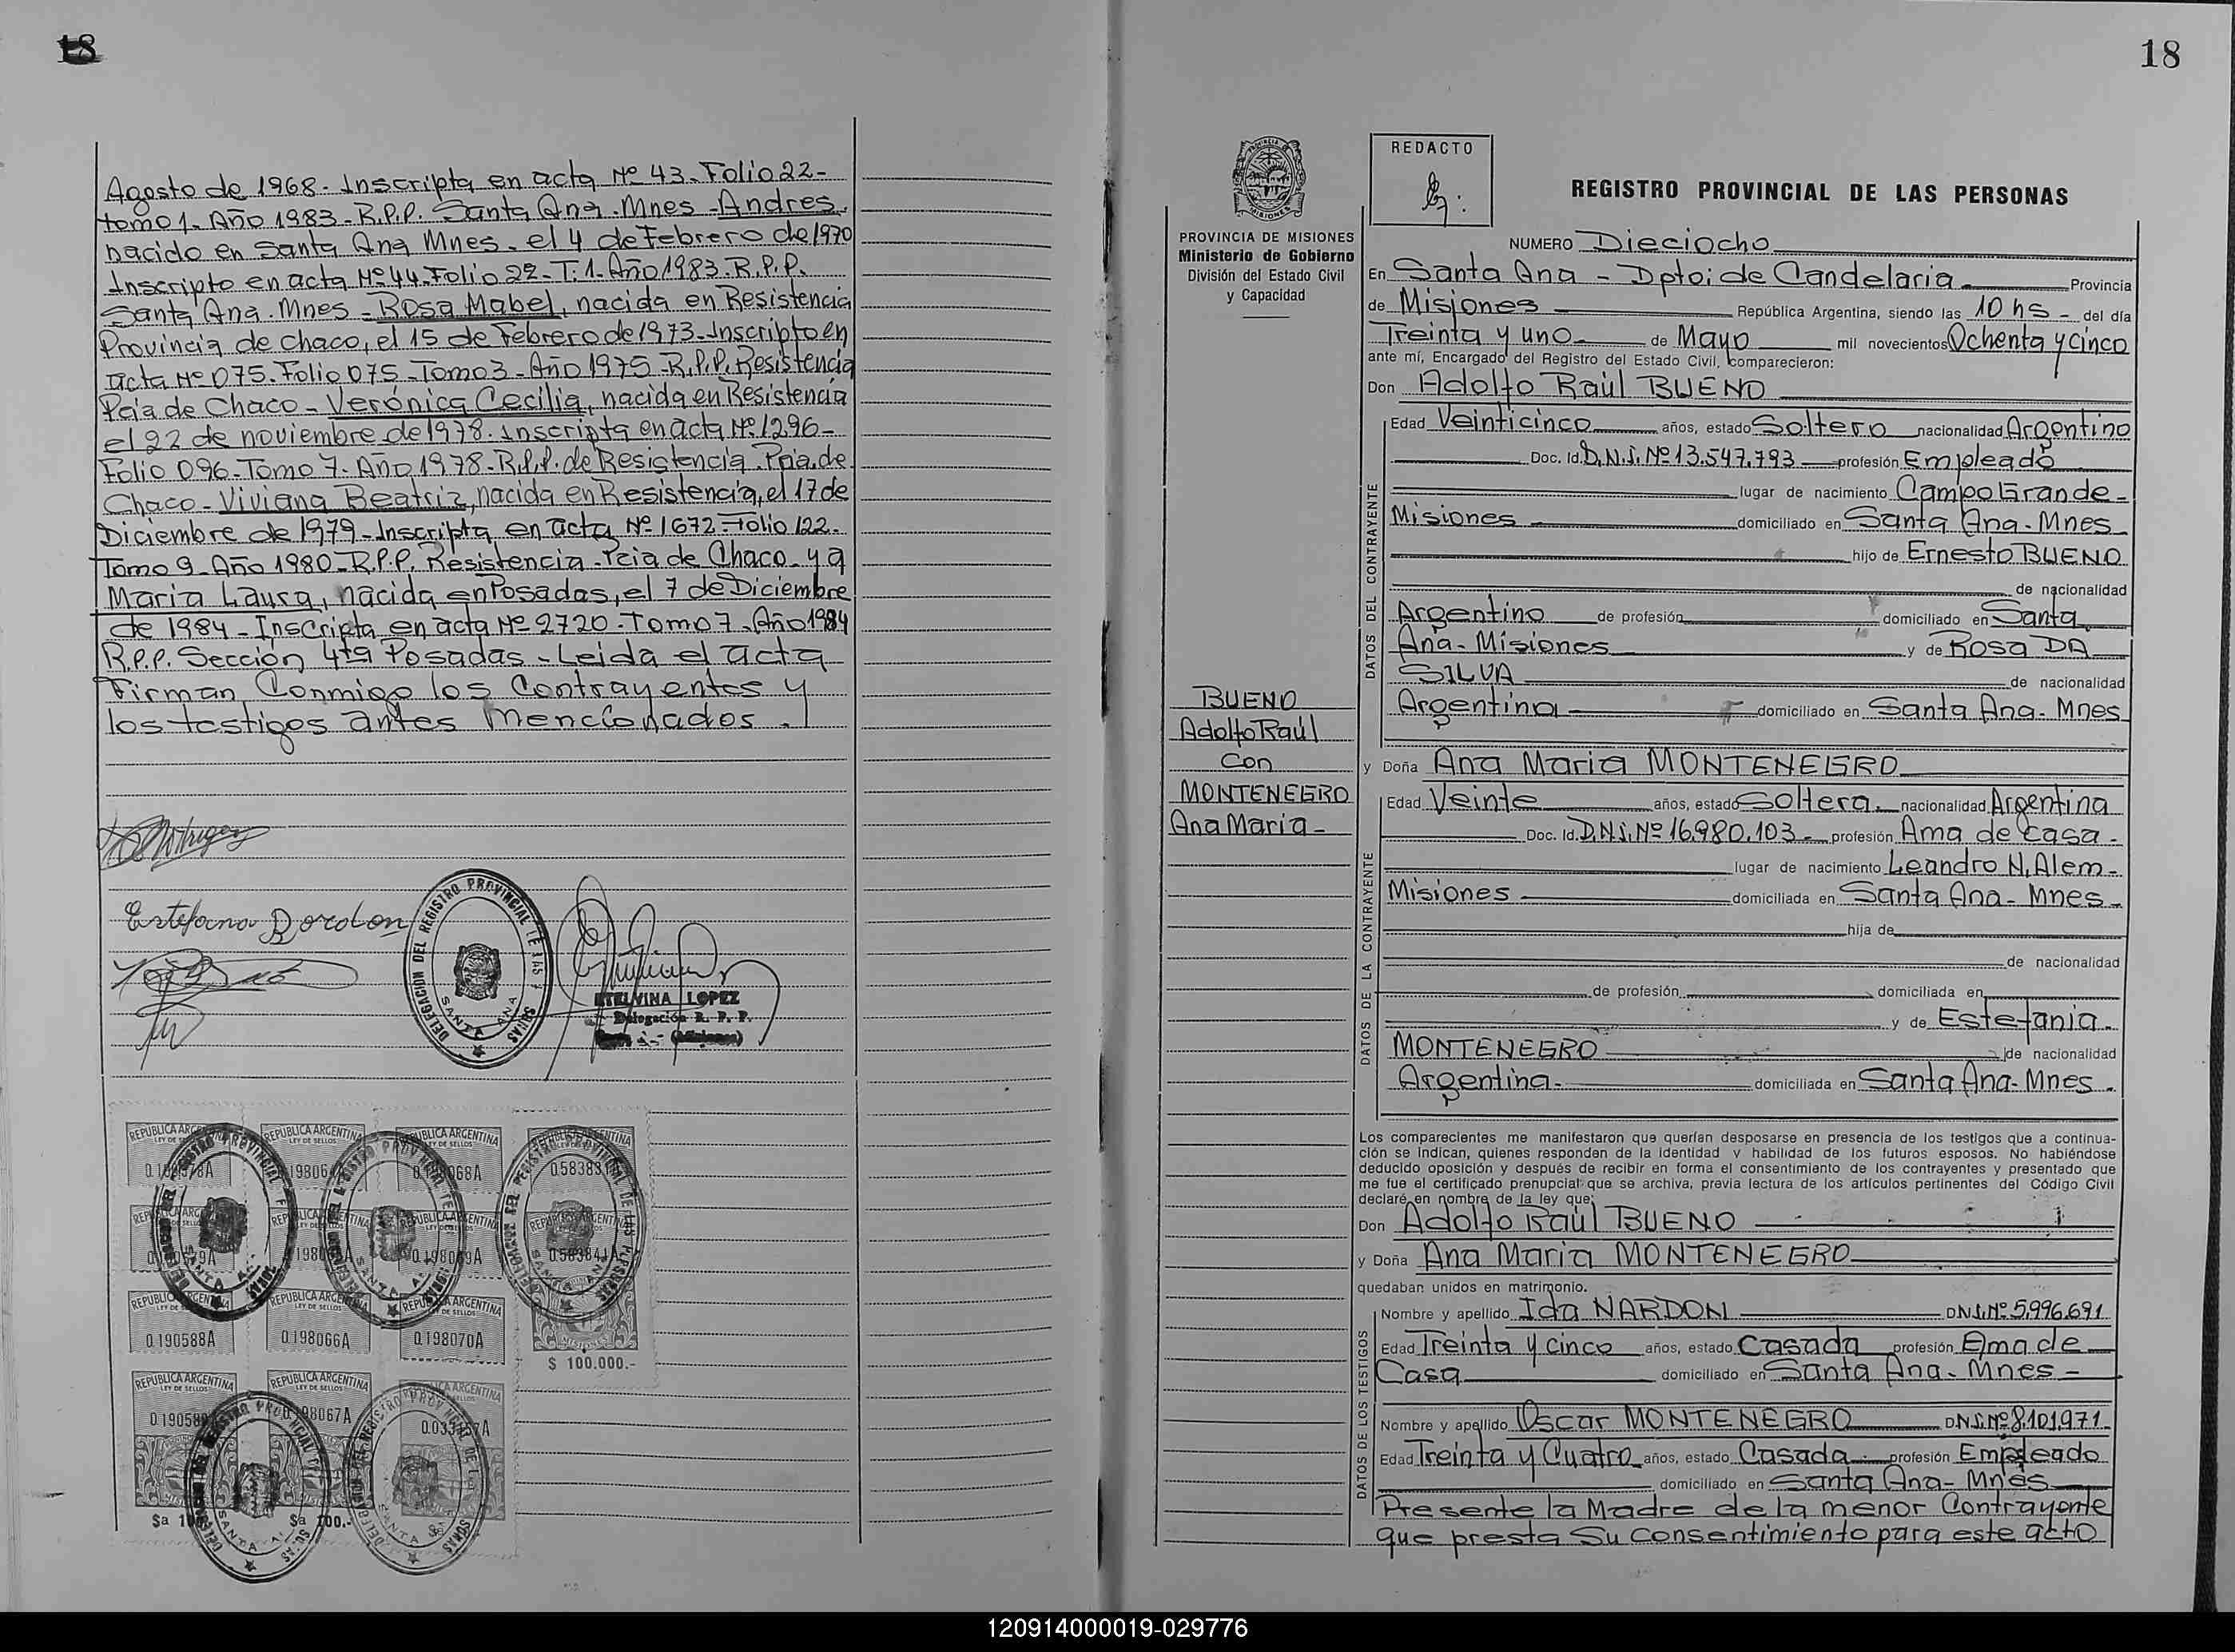 18
Agosto de 1968. Inscripta en acta Nº 43. Folio 22-
tomo 1. Año 1983. R.P.P. Santa Ana. Mnes - Andres,
nacido en Santa Ana Mnes. el 4 de Febrero de 1970
Inscripto en acta Nº 44. Folio 22. T: 1. Año 1983. R.P.P.
Santa Ana. Mnes - Rosa Mabel, nacida en Resistencia
Provincia de Chaco, el 15 de Febrero de 1973. Inscripto en
acta Nº 075. Folio 075 - Tomo 3 - Año 1975 - R.P.P. Resistencia
Pcia de Chaco - Verónica Cecilia, nacida en Resistencia
el 22 de noviembre de 1978. Inscripta en acta Nº 1296-
Folio 096. Tomo 7. Año 1978. R.P.P. de Resistencia. Pcia. de
Chaco - Viviana Beatriz, nacida en Resistencia, el 17 de
Diciembre de 1979 - Inscripta en acta Nº 1672 - Folio 122.
Tomo 9 - Año 1980 - R.P.P. Resistencia - Pcia de Chaco - y a
Maria Laura, nacida en Posadas, el 7 de Diciembre
de 1984 - Inscripta en acta Nº 2720 - Tomo 7 - Año 1984
R.P.P. Sección 4ta Posadas - Leida el acta
Firman Conmigo los Contrayentes y
los testigos antes mencionados.
Estefana Bordon
DELEGACION DEL REGISTRO PROVINCIAL DE LAS PERSONAS
SANTA ANA
ETELVINA LOPEZ
Delegación R. P. P.
(Misiones)
REPUBLICA ARGENTINA
LEY DE SELLOS
0.190588A
0.198066A
0.198070A
$ 100.000.-
18
PROVINCIA DE MISIONES
Ministerio de Gobierno
División del Estado Civil
y Capacidad
BUENO
Adolfo Raúl
Con
MONTENEGRO
Ana Maria -
REDACTO
REGISTRO PROVINCIAL DE LAS PERSONAS
NUMERO Dieciocho
En Santa Ana - Dpto: de Candelaria Provincia
de Misiones República Argentina, siendo las 10 hs - del día
Treinta y uno de Mayo mil novecientos Ochenta y cinco
ante mí, Encargado del Registro del Estado Civil, comparecieron:
Don Adolfo Raúl BUENO
DATOS DEL CONTRAYENTE
Edad Veinticinco años, estado Soltero nacionalidad Argentino
Doc. Id. D.N.I. Nº 13.547.793 profesión Empleado
lugar de nacimiento Campo Grande -
Misiones domiciliado en Santa Ana - Mnes
hijo de Ernesto BUENO
de nacionalidad
Argentino de profesión domiciliado en Santa
Ana - Misiones y de Rosa DA
SILVA de nacionalidad
Argentina domiciliado en Santa Ana - Mnes
y Doña Ana Maria MONTENEGRO
DATOS DE LA CONTRAYENTE
Edad Veinte años, estado Soltera. nacionalidad Argentina
Doc. Id. D.N.I. Nº 16.980.103 - profesión Ama de casa -
lugar de nacimiento Leandro N. Alem -
Misiones domiciliada en Santa Ana - Mnes -
hija de
de nacionalidad
de profesión domiciliada en
y de Estefania.
MONTENEGRO de nacionalidad
Argentina - domiciliada en Santa Ana - Mnes -
Los comparecientes me manifestaron que querían desposarse en presencia de los testigos que a continua-
ción se indican, quienes responden de la identidad y habilidad de los futuros esposos. No habiéndose
deducido oposición y después de recibir en forma el consentimiento de los contrayentes y presentado que
me fue el certificado prenupcial que se archiva, previa lectura de los artículos pertinentes del Código Civil
declaré en nombre de la ley que:
Don Adolfo Raúl BUENO
y Doña Ana Maria MONTENEGRO
quedaban unidos en matrimonio.
DATOS DE LOS TESTIGOS
Nombre y apellido Ida NARDON D.N.I. Nº 5.996.691
Edad Treinta y cinco años, estado Casada profesión Ama de
Casa domiciliado en Santa Ana - Mnes -
Nombre y apellido Oscar MONTENEGRO D.N.I. Nº 8.101.971
Edad Treinta y Cuatro años, estado Casada profesión Empleado
domiciliado en Santa Ana - Mnes
Presente la Madre de la menor Contrayente
que presta su consentimiento para este acto
120914000019-029776